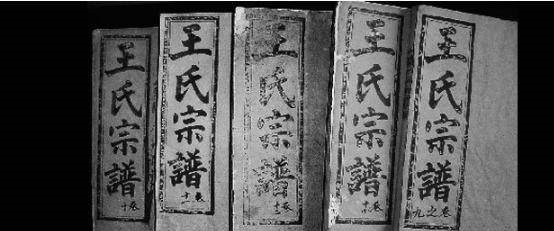 王氏宗譜
卷十
王氏宗譜
卷十一
王氏宗譜
卷
王氏宗譜
卷
王氏宗譜
卷之九